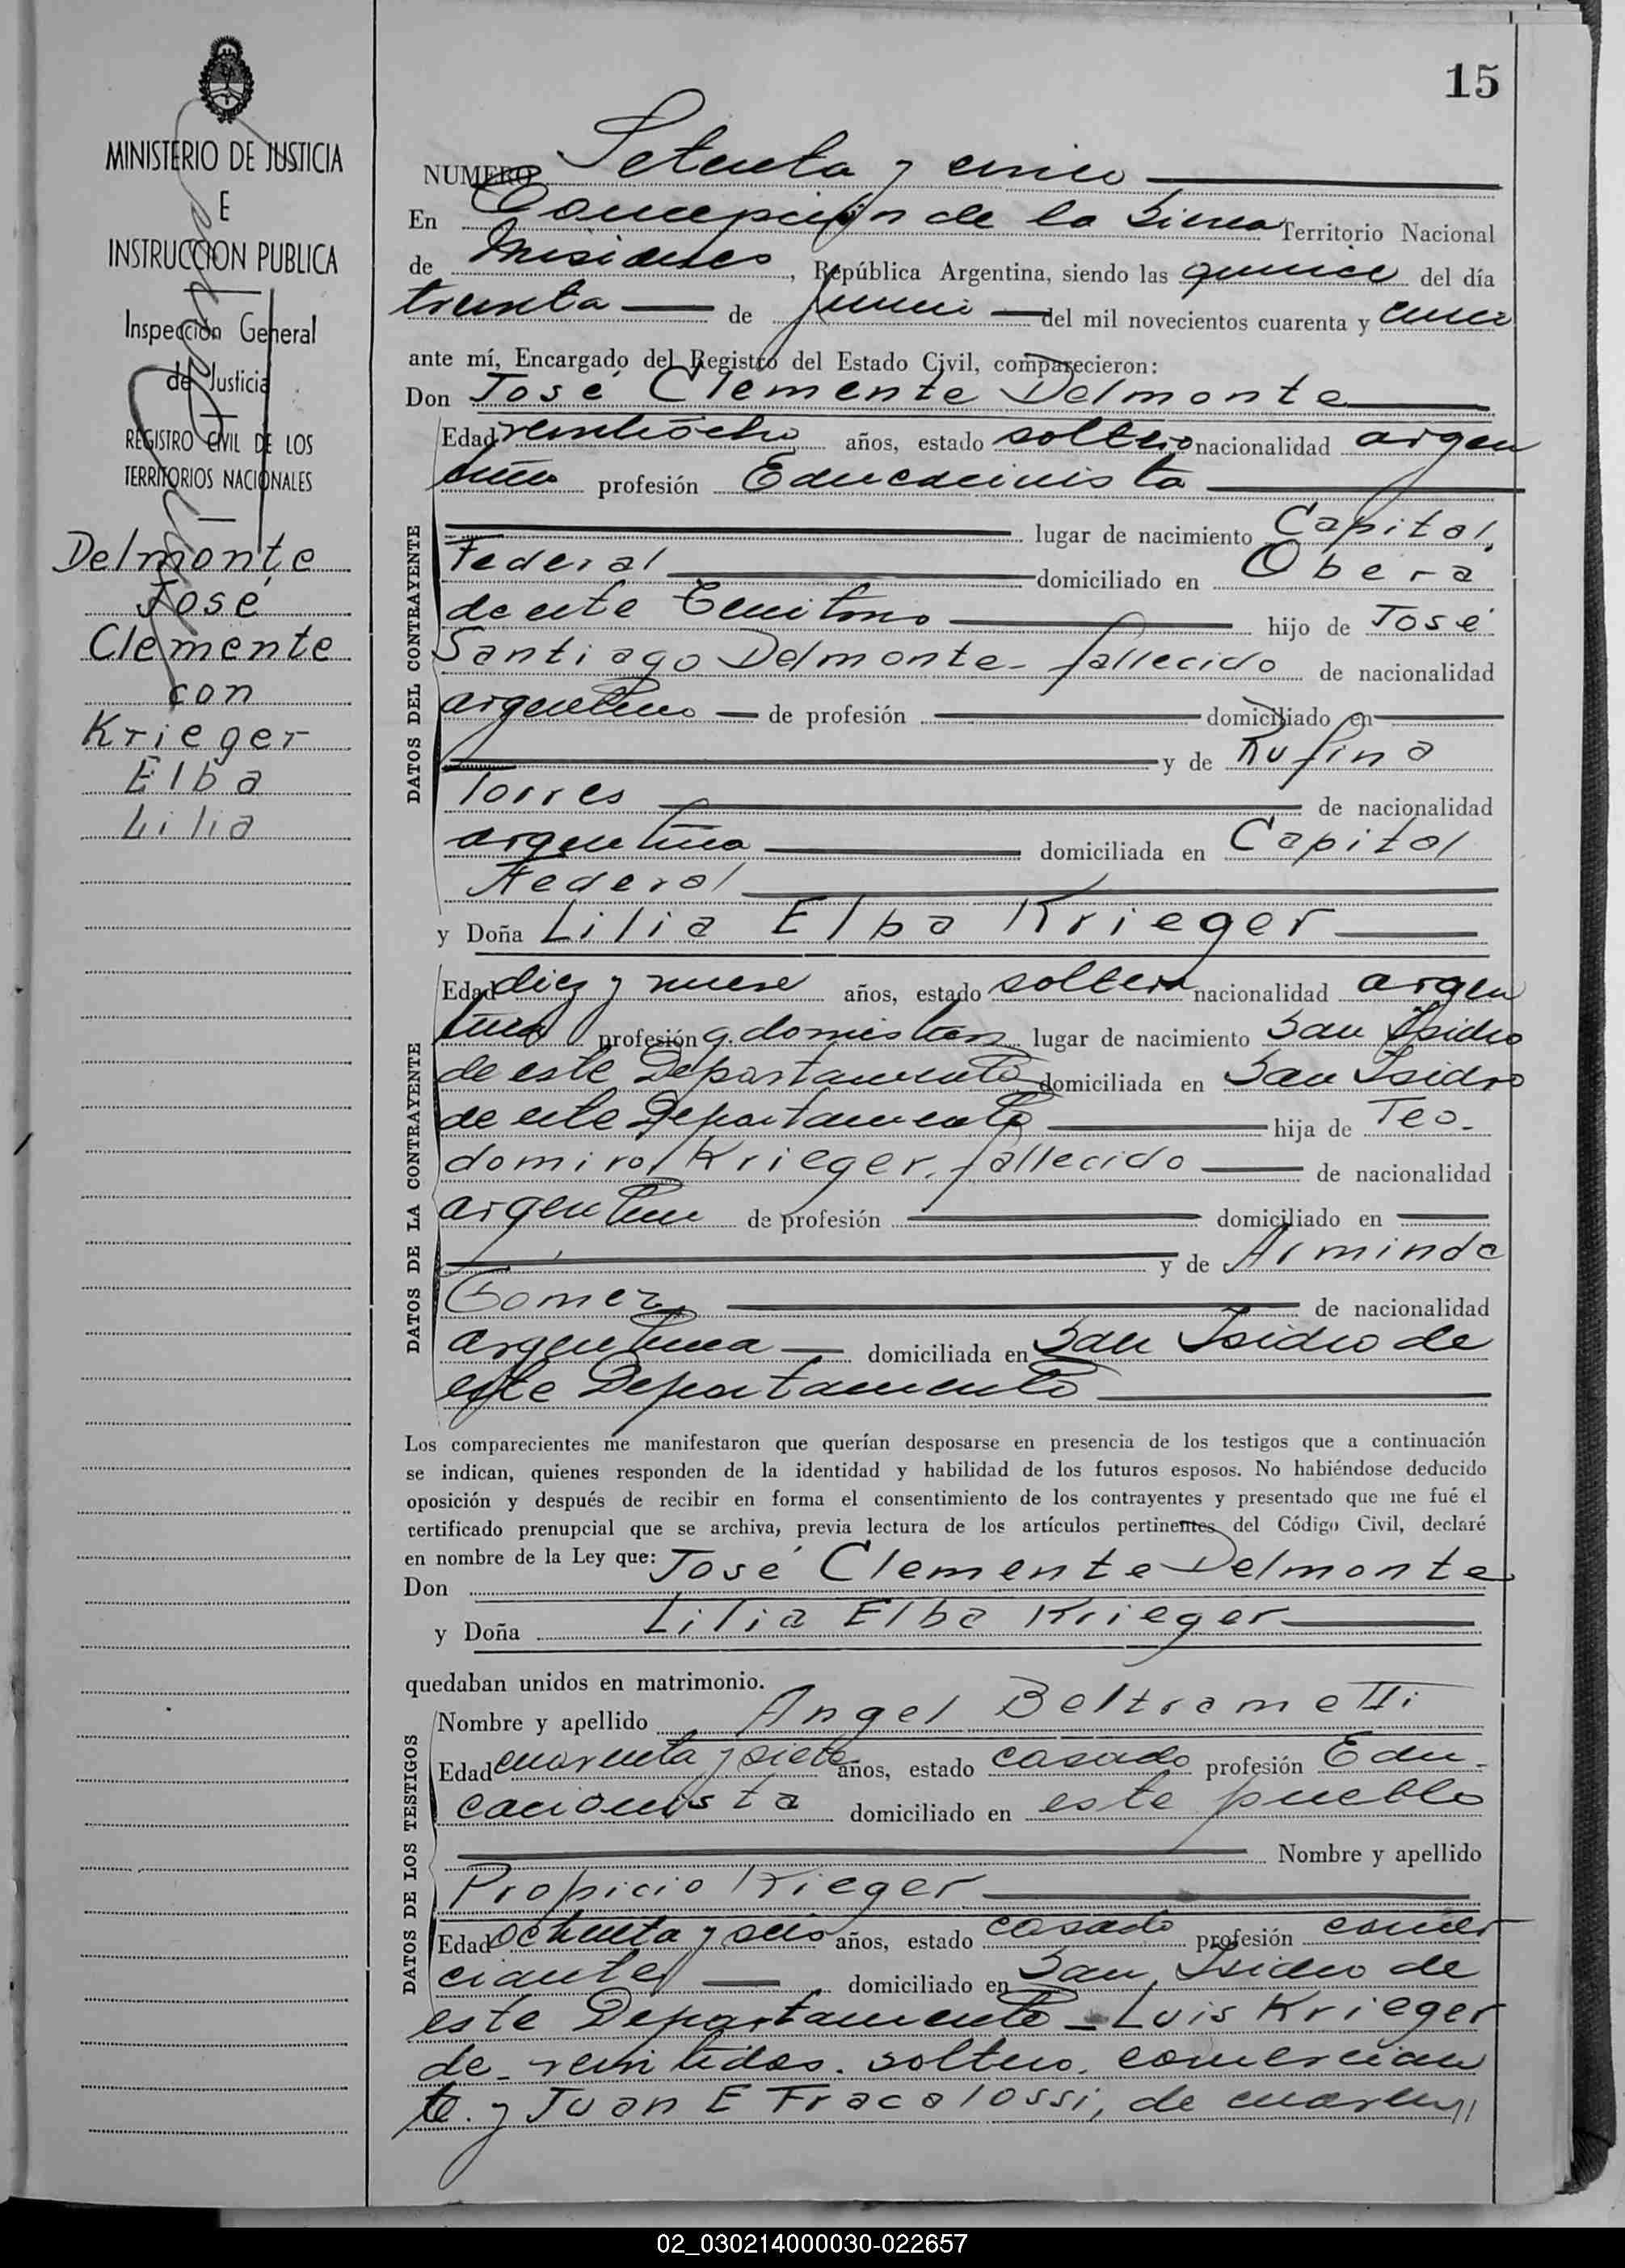 15
MINISTERIO DE JUSTICIA
E
INSTRUCCION PUBLICA
Inspección General
de Justicia
REGISTRO CIVIL DE LOS
TERRITORIOS NACIONALES
Delmonte
José
Clemente
con
Krieger
Elba
Lilia
NUMERO Setenta y cinco
En Concepción de la Sierra Territorio Nacional
de Misiones, República Argentina, siendo las quince del día
treinta de junio del mil novecientos cuarenta y cinco
ante mí, Encargado del Registro del Estado Civil, comparecieron:
Don José Clemente Delmonte
DATOS DEL CONTRAYENTE
Edad veintiocho años, estado soltero nacionalidad argen
tino profesión Educacionista
lugar de nacimiento Capital
Federal domiciliado en Oberá
de este Territorio hijo de José
Santiago Delmonte - fallecido de nacionalidad
argentino de profesión domiciliado en
y de Rufina
Torres de nacionalidad
argentina domiciliada en Capital
Federal
y Doña Lilia Elba Krieger
DATOS DE LA CONTRAYENTE
Edad diez y nueve años, estado soltera nacionalidad argen
tina profesión q. domésticos lugar de nacimiento San Isidro
de este Departamento domiciliada en San Isidro
de este Departamento hija de Teo-
domiro Krieger, fallecido de nacionalidad
argentino de profesión domiciliado en
y de Arminda
Gomez de nacionalidad
argentina domiciliada en San Isidro de
este Departamento
Los comparecientes me manifestaron que querían desposarse en presencia de los testigos que a continuación
se indican, quienes responden de la identidad y habilidad de los futuros esposos. No habiéndose deducido
oposición y después de recibir en forma el consentimiento de los contrayentes y presentado que me fué el
certificado prenupcial que se archiva, previa lectura de los artículos pertinentes del Código Civil, declaré
en nombre de la Ley que:
Don José Clemente Delmonte
y Doña Lilia Elba Krieger
quedaban unidos en matrimonio.
DATOS DE LOS TESTIGOS
Nombre y apellido Angel Beltrametti
Edad cuarenta y siete años, estado casado profesión Edu-
cacionista domiciliado en este pueblo
Nombre y apellido
Propicio Krieger
Edad ochenta y seis años, estado casado profesión comer
ciante domiciliado en San Isidro de
este Departamento - Luis Krieger
de veintidos. soltero. comercian
te. y Juan E Fracalossi, de cuaren//
02_030214000030-022657